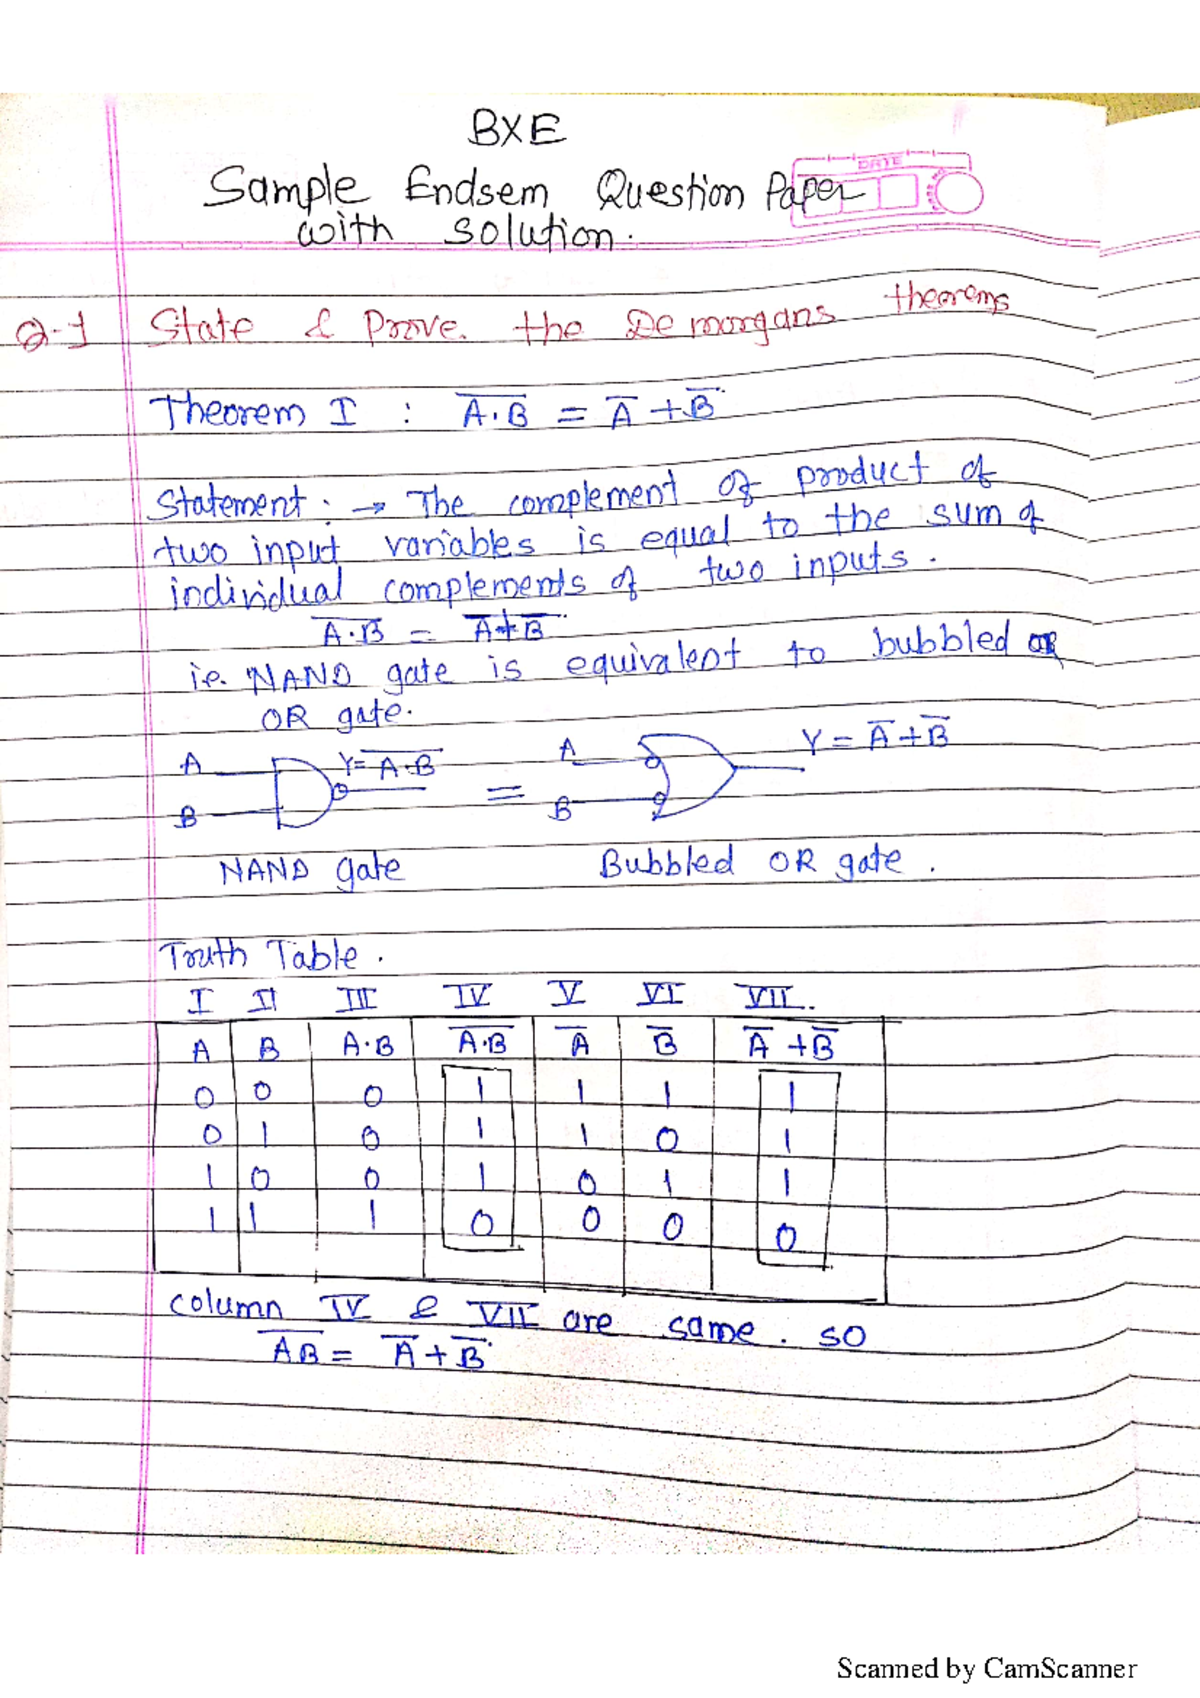 BXE
DATE
Sample Endsem Question Paper
with solution.
Q-1 State & Prove. the De morgans theorems
Theorem I : A̅·̅B̅ = A̅ + B̅
Statement: → The complement of product of
two input variables is equal to the sum of
individual complements of two inputs.
A̅·̅B̅ = A̅+B̅
i.e. NAND gate is equivalent to bubbled OR
OR gate.
A Y= A̅·̅B̅ = A Y = A̅+B̅
B B
NAND gate Bubbled OR gate.
Truth Table.
I II III IV V VI VII.
A B A·B A̅·̅B̅ A̅ B̅ A̅ + B̅
0 0 0 1 1 1 1
0 1 0 1 1 0 1
1 0 0 1 0 1 1
1 1 1 0 0 0 0
column IV & VII are same. so
A̅B̅ = A̅ + B̅
Scanned by CamScanner